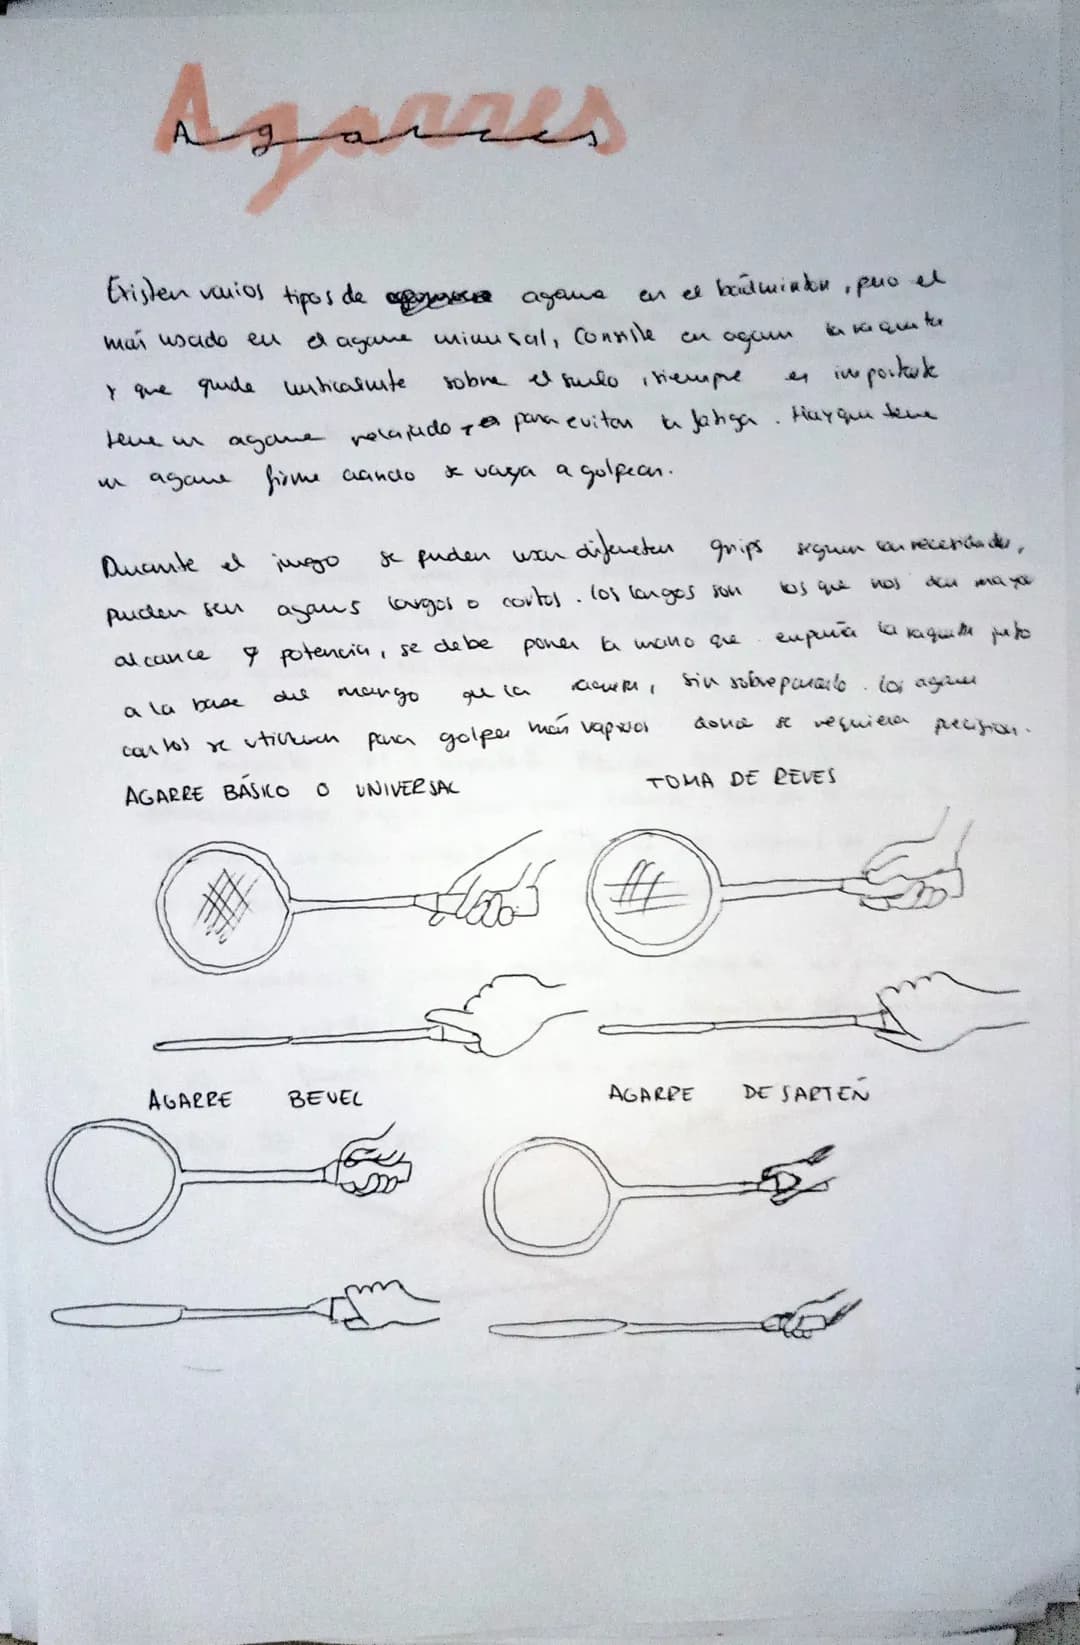 Agarres
Existen varios tipos de agarre en el bádminton, pero el
más usado en el agarre universal, Consiste en agarrar la raqueta
y que quede verticalmente sobre el suelo, siempre es importante
tener un agarre relajado para evitar la fatiga. Hay que tener
un agarre firme cuando se vaya a golpear.
Durante el juego se pueden usar diferentes grips según las necesidades,
pueden ser agarres largos o cortos. los largos son los que nos dan mayor
alcance y potencia, se debe poner la mano que empuña la raqueta junto
a la base del mango de la raqueta, sin sobrepasarlo. los agarres
cortos se utilizan para golpes más rápidos donde se requiera precisión.
AGARRE BÁSICO O UNIVERSAL
TOMA DE REVES
AGARRE BEVEL
AGARRE DE SARTEÑ